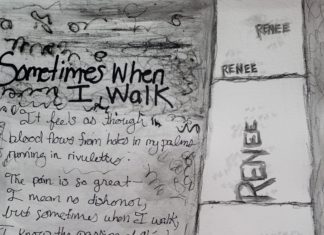 Sometimes When
I Walk
It feels as though
blood flows from holes in my palms
running in rivulets.
The pain is so great—
I mean no dishonor,
but sometimes when I walk,
I know the
RENEE
RENEE
RENEE